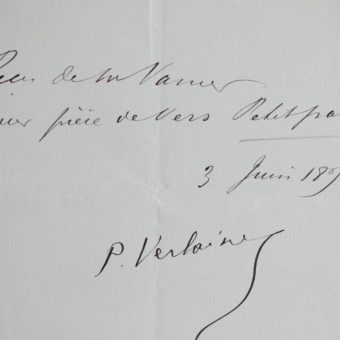 Reçu de M Vanier
pour pièce de vers Petit
3 Juin 189
P. Verlaine